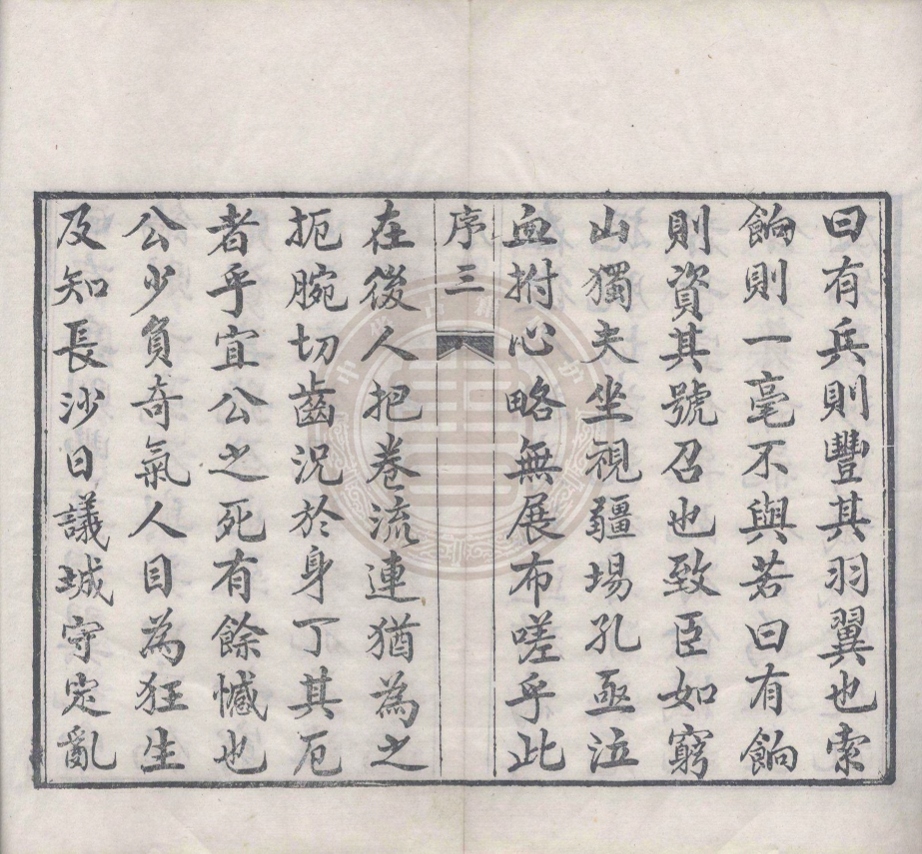 曰有兵則豐其羽翼也索
餉則一毫不與若曰有餉
則資其號召也致臣如窮
山獨夫坐視疆埸孔亟泣
血拊心略無展布嗟乎此
序三
在後人把卷流連猶為之
扼腕切齒況於身丁其厄
者乎宜公之死有餘憾也
公少負奇氣人目為狂生
及知長沙日議城守定亂